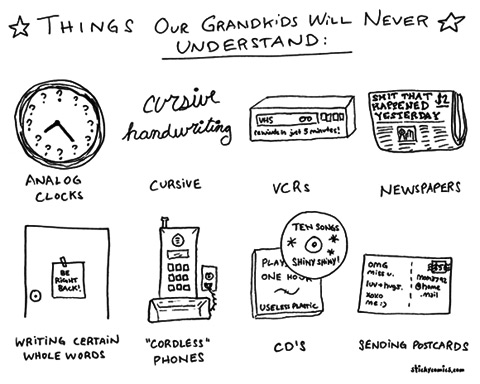 ☆ THINGS OUR GRANDKIDS WILL NEVER ☆
UNDERSTAND:
? ? ? ? ? ? ? ? ? ? ? ?
ANALOG
CLOCKS
cursive
handwriting
CURSIVE
VHS
rewinds in just 5 minutes!
VCRs
SHIT THAT
HAPPENED
YESTERDAY
$2
NEWSPAPERS
BE
RIGHT
BACK!
WRITING CERTAIN
WHOLE WORDS
"CORDLESS"
PHONES
TEN SONGS
SHINY SHINY!
PLAYS
ONE HOUR
USELESS PLASTIC
CD'S
OMG
miss u.
luv+hugs.
xoxo
me :)
mom3792
@home
.mail
SENDING POSTCARDS
stickycomics.com